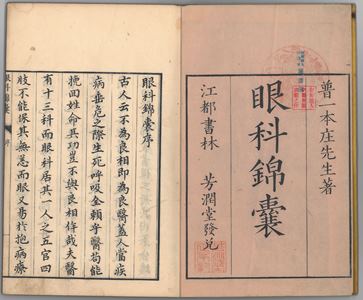 普一本庄先生著
眼科錦囊
江都書林　芳潤堂發兌
眼科錦囊序
古人云不為良相即為良醫蓋人當疾
病垂危之際生死呼吸全賴乎醫苟能
挽回姓命其功豈不與良相侔哉夫醫
有十三科而眼科居其一人之五官四
肢不能保其無恙而眼又為於抱病療
眼科錦囊　序